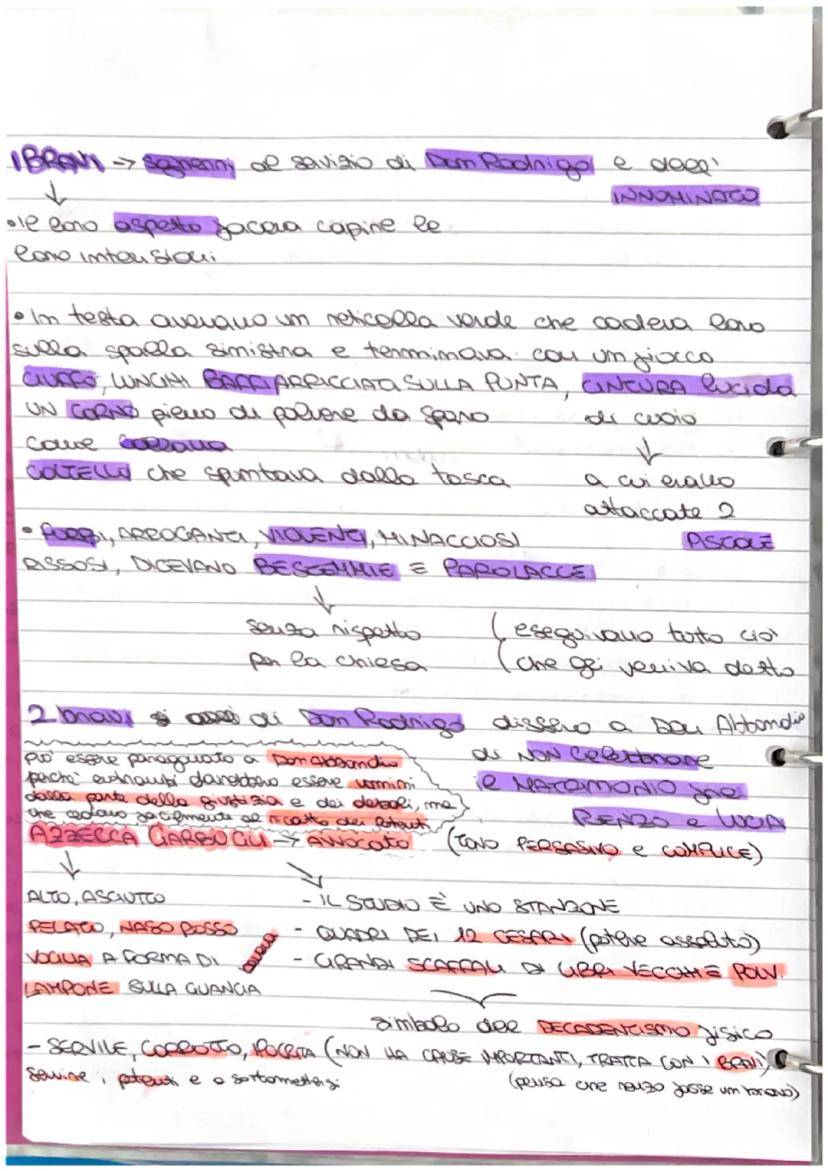 I BRAVI → scherani al servizio di Don Rodrigo e dell'
INNOMINATO
• il loro aspetto faceva capire le
loro intenzioni
• In testa avevano un reticella verde che cadeva loro
sulla spalla sinistra e terminava con un fiocco
CIUFFO, LUNGHI BAFFI ARRICCIATI SULLA PUNTA, CINTURA lucida
UN CORNO pieno di polvere da sparo di cuoio
come collana
COLTELLO che spuntava dalla tasca a cui erano
attaccate 2
• FURBI, ARROGANTI, VIOLENTI, MINACCIOSI PISTOLE
RISSOSI, DICEVANO BESTEMMIE E PAROLACCE
senza rispetto (eseguivano tutto ciò
per la chiesa (che gli veniva detto
2 bravi di Don Rodrigo dissero a Don Abbondio
di NON celebrare
il MATRIMONIO fra
RENZO e LUCIA
può essere paragonato a Don Abbondio
perchè entrambi dovrebbero essere uomini
dalla parte della giustizia e dei deboli, ma
che cedono facilmente al ricatto dei potenti
AZZECCA GARBUGLI → AVVOCATO (TONO PERSASIVO e COMPLICE)
ALTO, ASCIUTTO
PELATO, NASO ROSSO
VOGLIA A FORMA DI
LAMPONE SULLA GUANCIA
- IL STUDIO È UNO STANZONE
- QUADRI DEI 12 CESARI (potere assoluto)
- GRANDI SCAFFALI DI LIBRI VECCHI E POLV.
simbolo del DECADENTISMO fisico
- SERVILE, CORROTTO, IPOCRITA (NON HA CAUSE IMPORTANTI, TRATTA CON I BRAVI)
servire i potenti e a sottomettersi (pensa che renzo fosse um bravo)